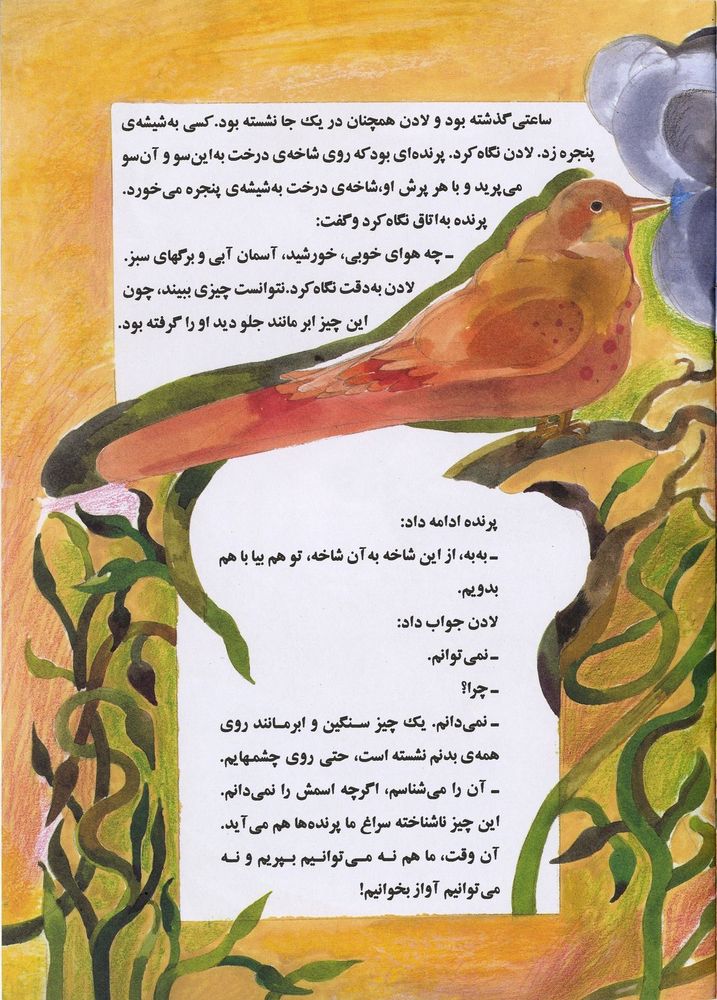 ساعتی گذشته بود و لادن همچنان در یک جا نشسته بود. کسی به‌شیشه‌ی
پنجره زد. لادن نگاه کرد. پرنده‌ای بود که روی شاخه‌ی درخت به‌این‌سو و آن‌سو
می‌پرید و با هر پرش او، شاخه‌ی درخت به‌شیشه‌ی پنجره می‌خورد.
پرنده به‌اتاق نگاه کرد و گفت:
ـ چه هوای خوبی، خورشید، آسمان آبی و برگهای سبز.
لادن به‌دقت نگاه کرد. نتوانست چیزی ببیند، چون
این چیز ابر مانند جلو دید او را گرفته بود.
پرنده ادامه داد:
ـ به‌به، از این شاخه به‌آن شاخه، تو هم بیا با هم
بدویم.
لادن جواب داد:
ـ نمی‌توانم.
ـ چرا؟
ـ نمی‌دانم. یک چیز سنگین و ابرمانند روی
همه‌ی بدنم نشسته است، حتی روی چشمهایم.
ـ آن را می‌شناسم، اگرچه اسمش را نمی‌دانم.
این چیز ناشناخته سراغ ما پرنده‌ها هم می‌آید.
آن وقت، ما هم نه می‌توانیم بپریم و نه
می‌توانیم آواز بخوانیم!